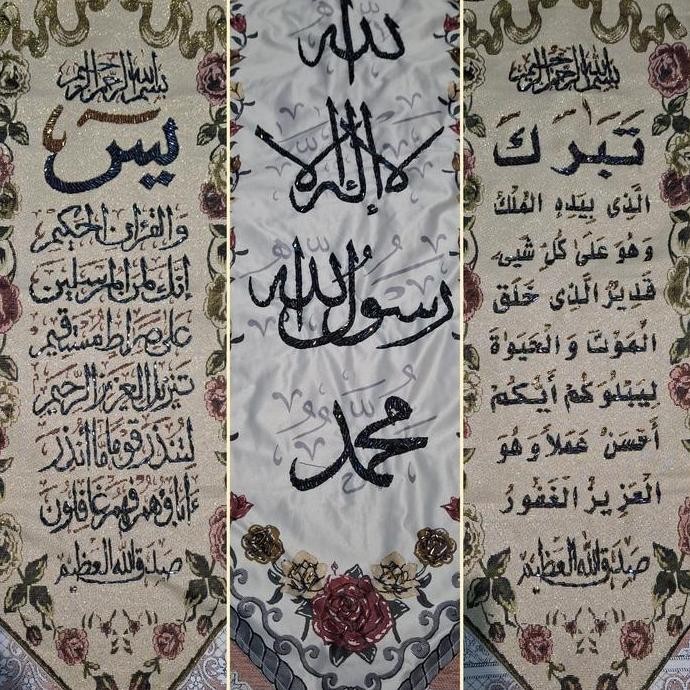 بسم الله الرحمن الرحيم
يس
والقرآن الحكيم
إنك لمن المرسلين
على صراط مستقيم
تنزيل العزيز الرحيم
لتنذر قوما ما أنذر
ءاباؤهم فهم غافلون
صدق الله العظيم
الله
لا إله إلا
رسول الله
محمد
بسم الله الرحمن الرحيم
تَبَرَكَ
الَّذى بِيَدِهِ المُلْكُ
وَهُوَ عَلَىٰ كُلِّ شَىْءٍ
قَدِيرٌ الَّذِى خَلَقَ
الْمَوْتَ وَالْحَيَوٰةَ
لِيَبْلُوَكُمْ أَيُّكُمْ
أَحْسَنُ عَمَلاً وَهُوَ
الْعَزِيزُ الْغَفُورُ
صدق الله العظيم